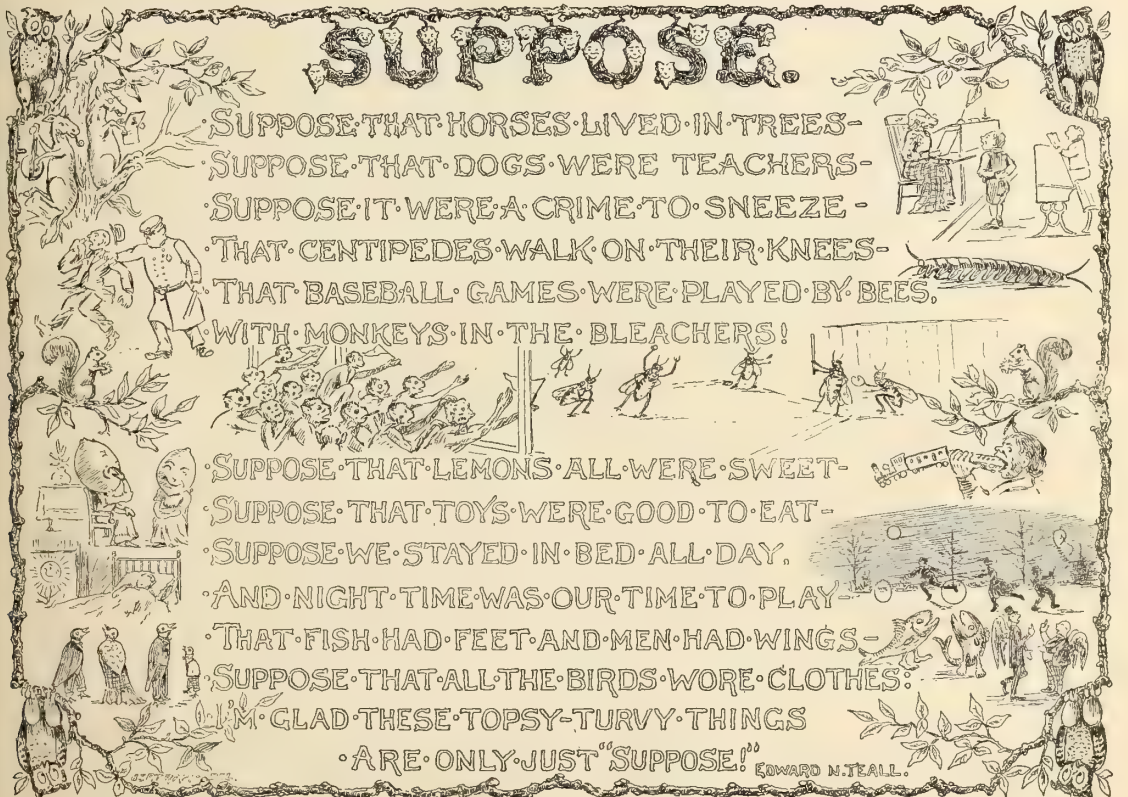 SUPPOSE.
SUPPOSE·THAT·HORSES·LIVED·IN·TREES-
SUPPOSE·THAT·DOGS·WERE TEACHERS-
SUPPOSE·IT·WERE·A·CRIME·TO·SNEEZE-
·THAT·CENTIPEDES·WALK·ON·THEIR·KNEES-
·THAT·BASEBALL·GAMES·WERE·PLAYED·BY·BEES,
·WITH·MONKEYS·IN·THE·BLEACHERS!
·SUPPOSE·THAT·LEMONS·ALL·WERE·SWEET-
SUPPOSE·THAT·TOYS·WERE·GOOD·TO·EAT-
SUPPOSE·WE·STAYED·IN·BED·ALL·DAY,
·AND·NIGHT·TIME·WAS·OUR·TIME·TO·PLAY-
·THAT·FISH·HAD·FEET·AND·MEN·HAD·WINGS-
SUPPOSE·THAT·ALL·THE·BIRDS·WORE·CLOTHES:
I'M·GLAD·THESE·TOPSY-TURVY·THINGS
·ARE·ONLY·JUST"SUPPOSE!"
EDWARD N. TEALL.